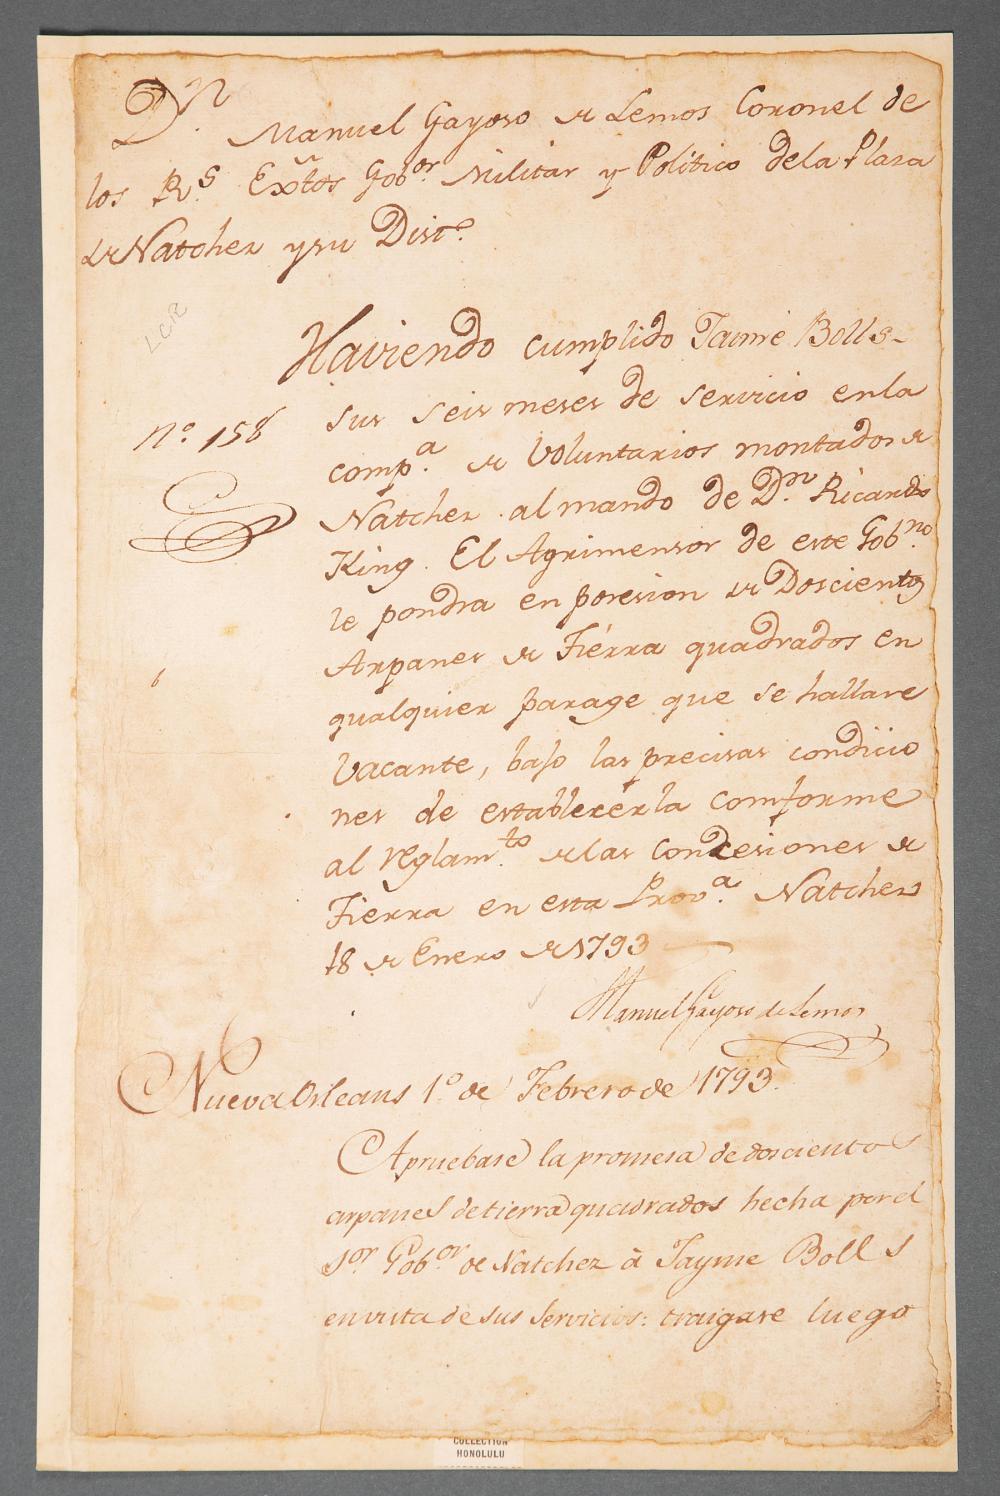 Dn. Manuel Gayoso de Lemos Coronel de
los Rs. Extos Gobor Militar y Politico dela Plaza
de Natchez y su Disto.
LCR
Haviendo cumplido Jaime Bolls
sus seis meses de servicio en la
No. 158
compa. de Voluntarios montados de
Natchez al mando de Dn. Ricardo
King. El Agrimensor de este Gobno.
le pondra en posesion de Doscientos
Arpanes de Tierra quadrados en
qualquier parage que se hallare
Vacante, bajo las precisas condicio
nes de establecerla comforme
al reglamto. de las Concesiones de
Tierra en esta Prova. Natchez
18 de Enero de 1793
Manuel Gayoso de Lemos
Nueva Orleans 1º. de Febrero de 1793.
Apruebase la promesa de doscientos
arpanes de tierra quadrados hecha por el
Sor Gobor de Natchez à Jayme Bolls
en vista de sus servicios: traigase luego
COLLECTION
HONOLULU